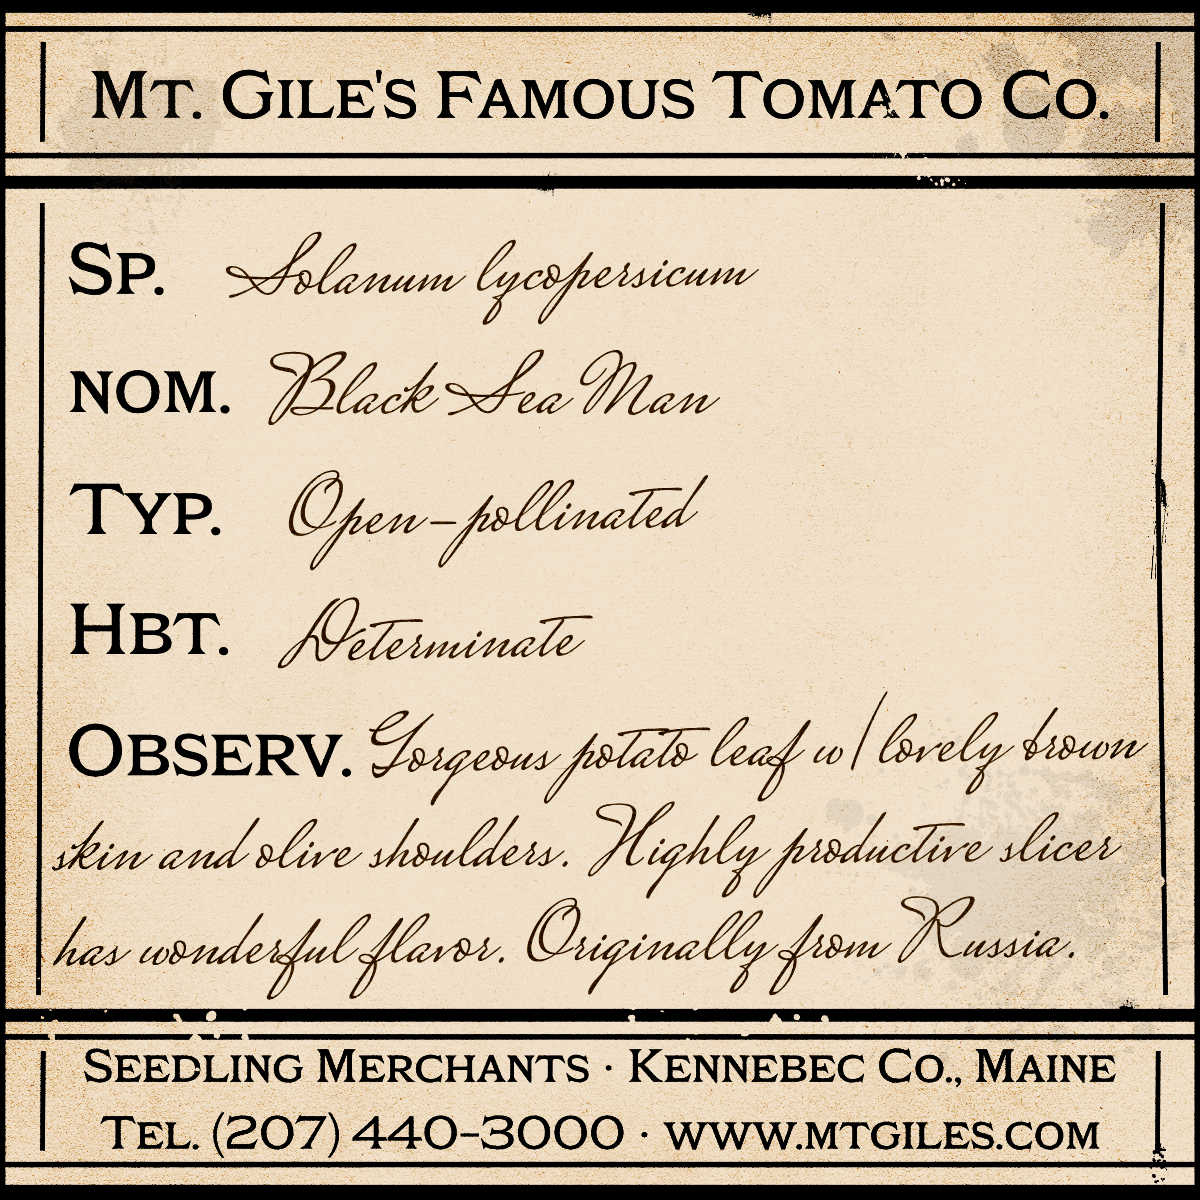 Mt. Gile's Famous Tomato Co.
Sp. Solanum lycopersicum
nom. Black Sea Man
Typ. Open-pollinated
Hbt. Determinate
Observ. Gorgeous potato leaf w/ lovely brown
skin and olive shoulders. Highly productive slicer
has wonderful flavor. Originally from Russia.
Seedling Merchants · Kennebec Co., Maine
Tel. (207) 440-3000 · www.mtgiles.com